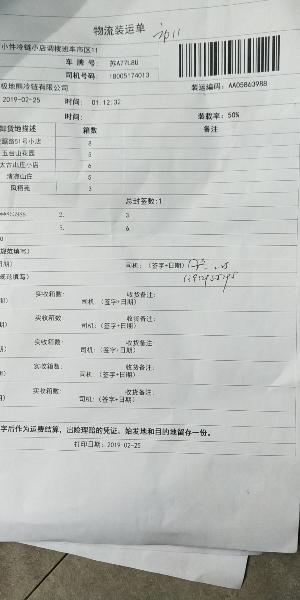 物流装运单
小件冷链小店调拨班车市区11
车 牌 号: 苏A77L8U
司机号码: 18005174013
极地熊冷链有限公司
装运编码: AA05863988
2019-02-25 时间: 01:12:32
时间: 装载率: 50%
卸货地描述 箱数 备注
路51号小店 8
五台山花园 5
太古山庄小店 6
清海山庄 5
凤栖苑 3
总封签数:1
2. 3.
5. 6.
规范填写)
日期) 司机: (签字+日期)
规范填写)
日期) 实收箱数: 收货备注:
司机: (签字+日期)
实收箱数: 收货备注:
日期) 司机: (签字+日期)
实收箱数: 收货备注:
日期) 司机: (签字+日期)
实收箱数: 收货备注:
日期) 司机: (签字+日期)
实收箱数: 收货备注:
日期) 司机: (签字+日期)
字后作为运费结算，出险理赔的凭证。始发地和目的地留存一份。
打印日期: 2019-02-25